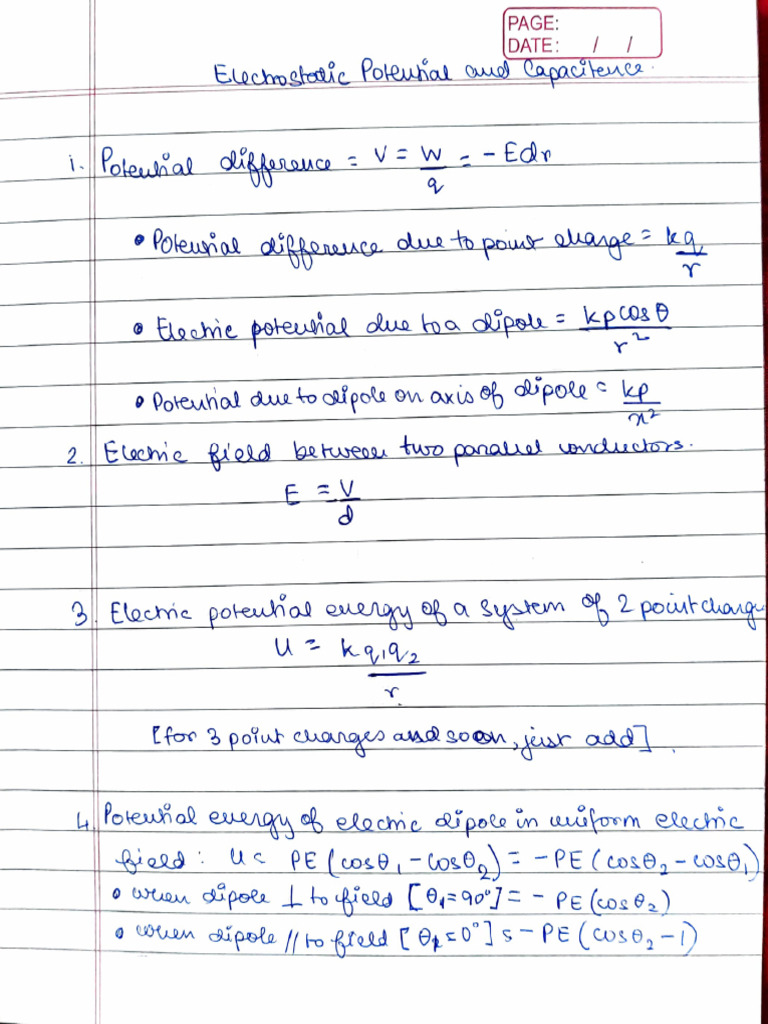 PAGE:
DATE: / /
Electrostatic Potential and Capacitence.
1. Potential difference = V = W/q = -Edr
• Potential difference due to point charge = kq/r
• Electric potential due to a dipole = kpcosθ/r²
• Potential due to dipole on axis of dipole = kp/x²
2. Electric field between two parallel conductors.
E = V/d
3. Electric potential energy of a system of 2 point charge
U = kq₁q₂/r
[for 3 point charges and so on, just add].
4. Potential energy of electric dipole in uniform electric
field: U = PE(cosθ₁-cosθ₂) = -PE(cosθ₂-cosθ₁)
• when dipole ⊥ to field [θ₁=90°] = -PE(cosθ₂)
• when dipole // to field [θ₁=0°] = -PE(cosθ₂-1)